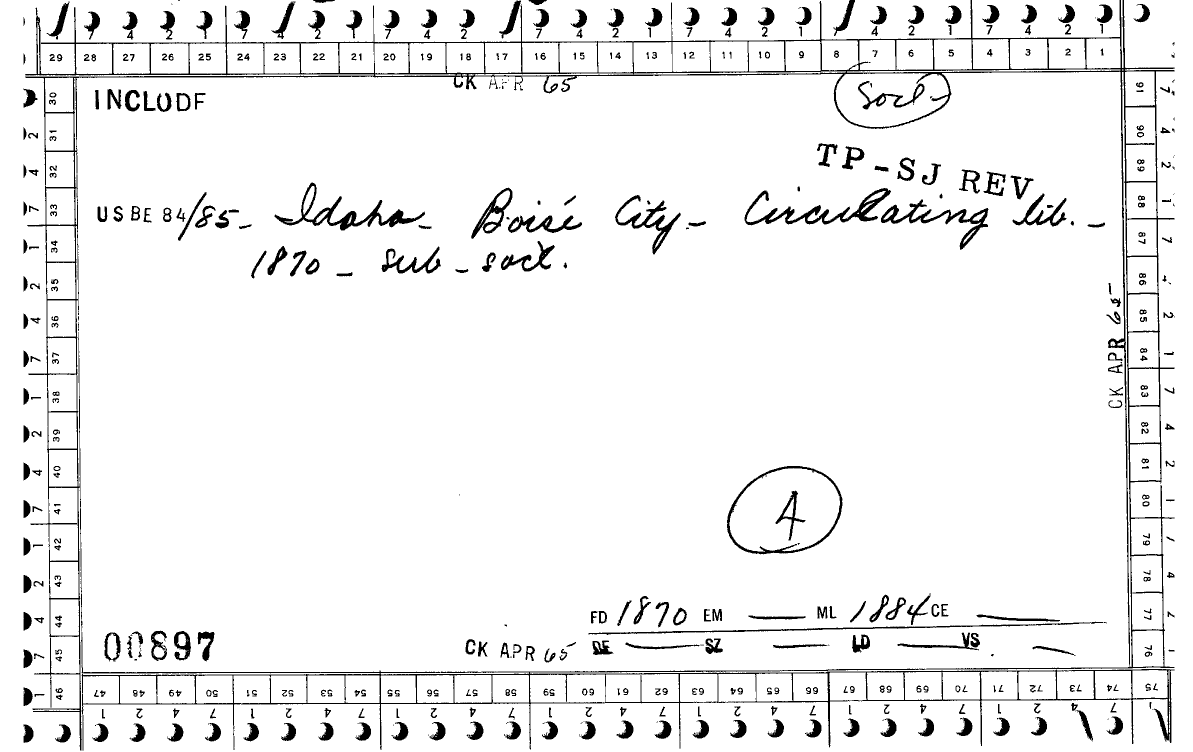 7 4 2 1 7 4 2 1 7 4 2 1 7 4 2 1 7 4 2 1 7 4 2 1 7 4 2 1
29 28 27 26 25 24 23 22 21 20 19 18 17 16 15 14 13 12 11 10 9 8 7 6 5 4 3 2 1
CK APR 65
INCLUDE
Socl-
TP-SJ REV
USBE 84/85- Idaho- Boisé City- Circulating lib.-
1870 - sub - socl.
CK APR 65
4
FD 1870 EM — ML 1884 CE —
00897
CK APR 65 DE — SZ — LD — VS. —
30 31 32 33 34 35 36 37 38 39 40 41 42 43 44 45 46
91 90 89 88 87 86 85 84 83 82 81 80 79 78 77 76
47 48 49 50 51 52 53 54 55 56 57 58 59 60 61 62 63 64 65 66 67 68 69 70 71 72 73 74 75
1 2 4 7 1 2 4 7 1 2 4 7 1 2 4 7 1 2 4 7 1 2 4 7 1 2 4 7